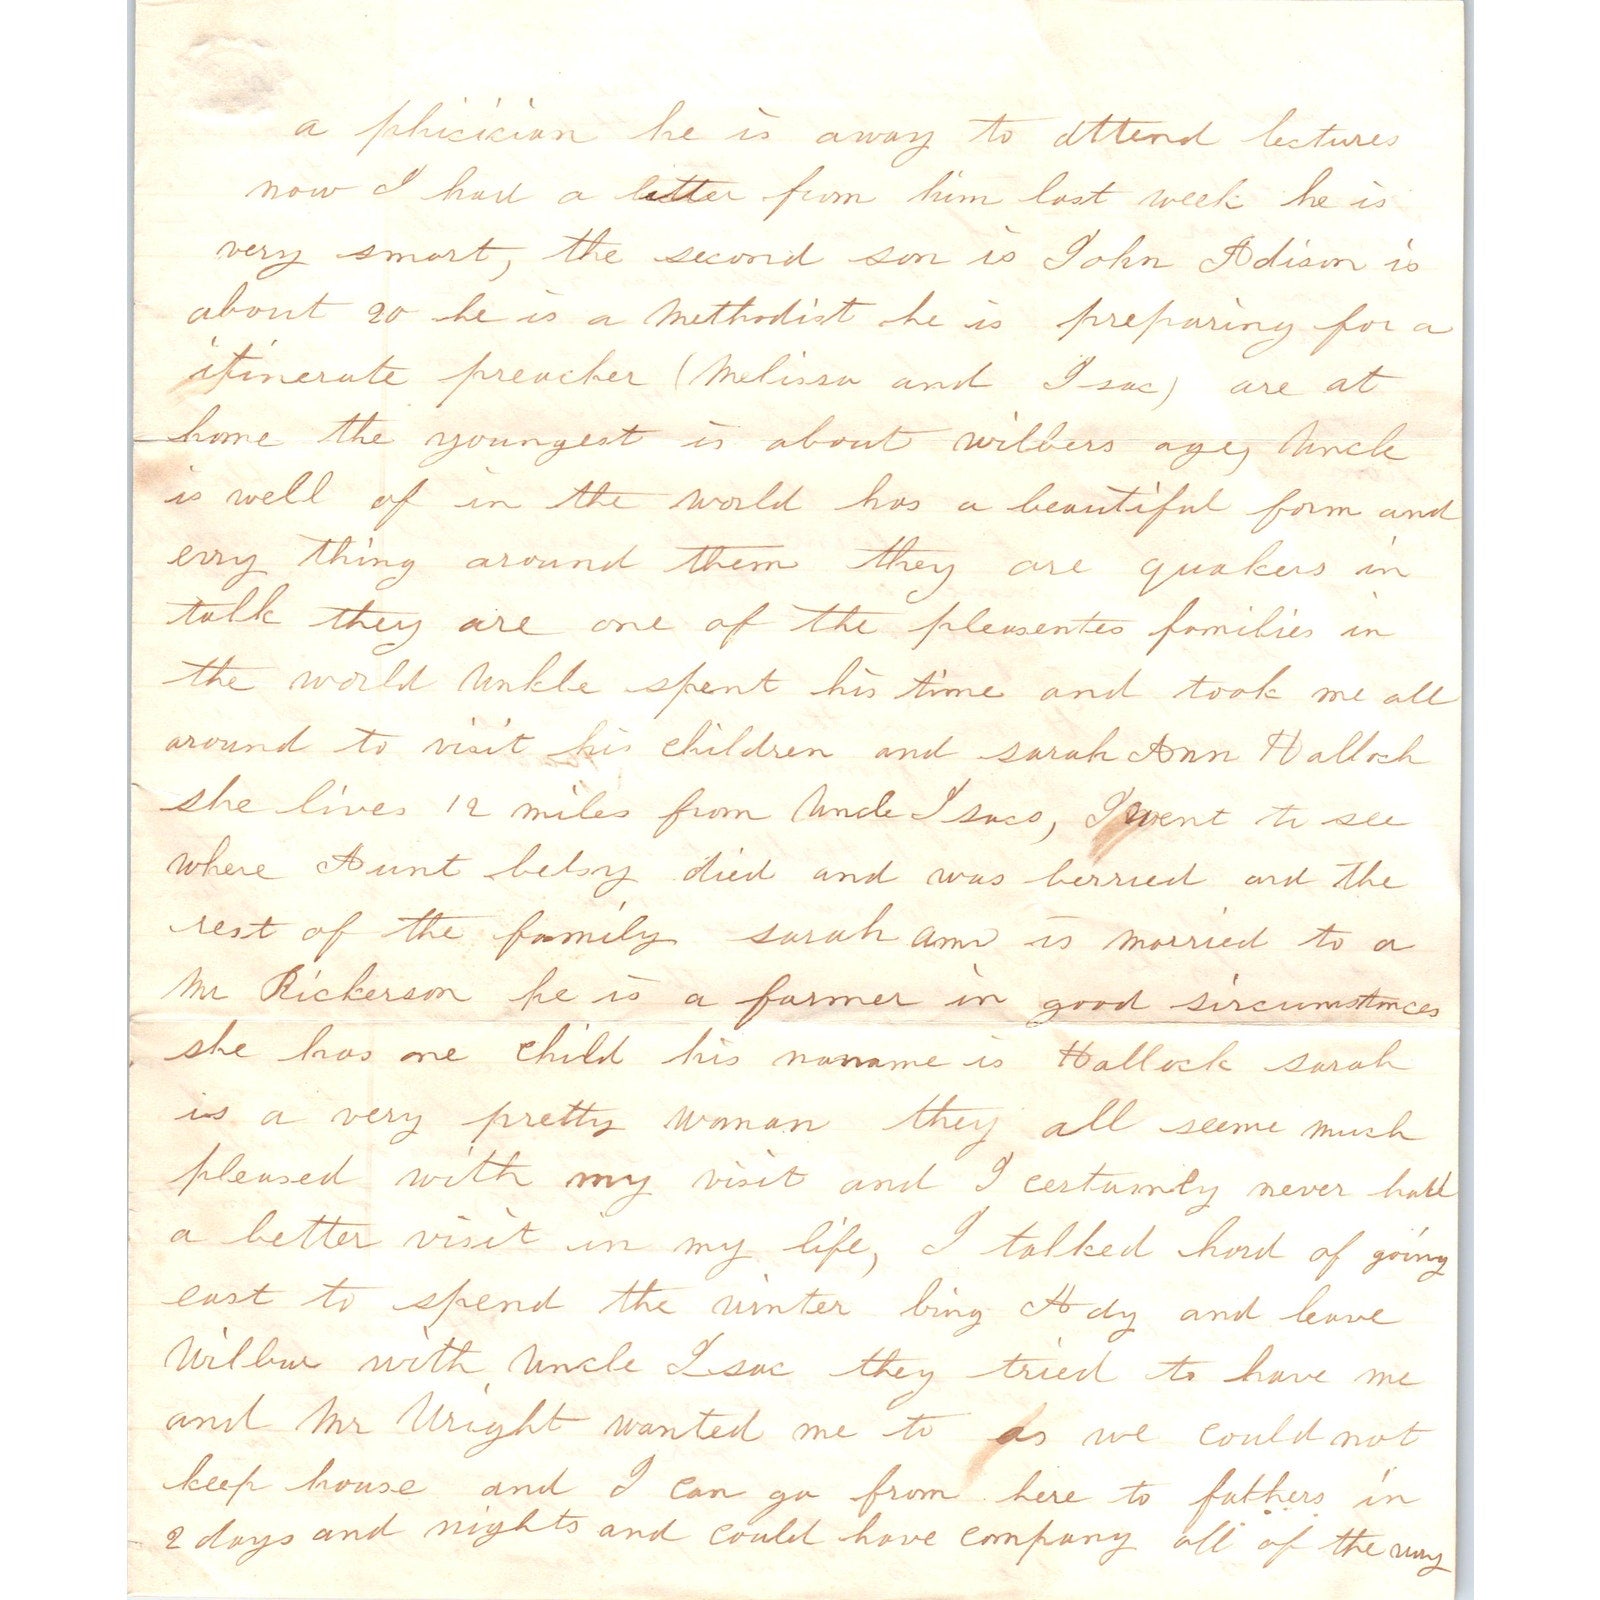 a phicician he is away to attend lectures
now I had a letter from him last week he is
very smart, the second son is John Adison is
about 20 he is a Methodist he is preparing for a
itinerate preacher (Melissa and Isac) are at
home the youngest is about wilbers age, Uncle
is well of in the world has a beautiful form and
evry thing around them they are quakers in
talk they are one of the pleasentes families in
the world Unkle spent his time and took me all
around to visit his children and sarah Ann Hallock
she lives 12 miles from Uncle Isacs, I went to see
where Aunt betsy died and was berried and the
rest of the family sarah ann is married to a
Mr Rickerson he is a farmer in good sircumstances
she has one child his naname is Hallock sarah
is a very pretty woman they all seeme much
pleased with my visit and I certainly never had
a better visit in my life, I talked hard of going
east to spend the winter bing Ady and leave
Wilbur with Uncle Isac they tried to have me
and Mr Wright wanted me to as we could not
keep house and I can go from here to fathers in
2 days and nights and could have company all of the way